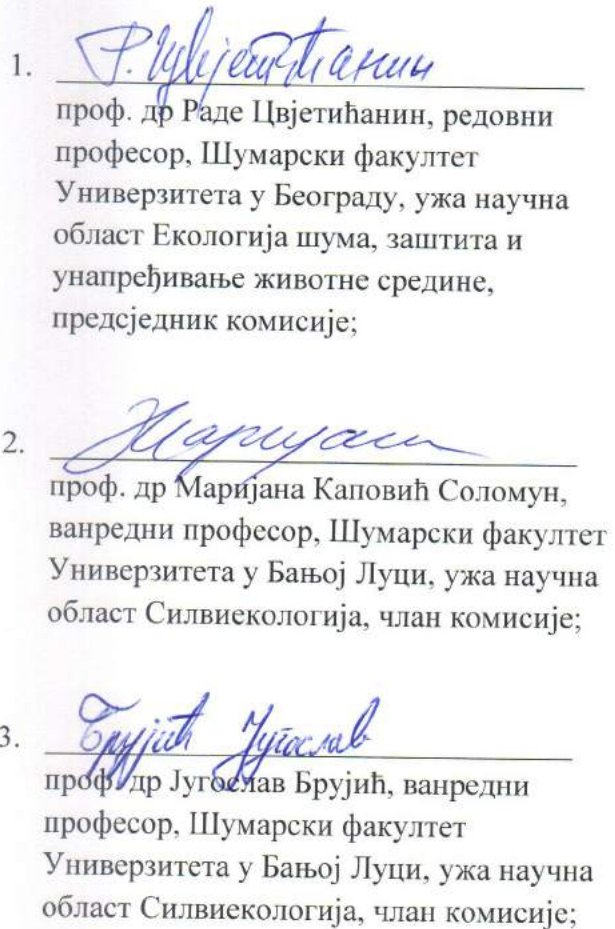 1. Р. Цвјетићанин
проф. др Раде Цвјетићанин, редовни
професор, Шумарски факултет
Универзитета у Београду, ужа научна
област Екологија шума, заштита и
унапређивање животне средине,
предсједник комисије;
2.
проф. др Маријана Каповић Соломун,
ванредни професор, Шумарски факултет
Универзитета у Бањој Луци, ужа научна
област Силвиекологија, члан комисије;
3. Брујић Југослав
проф. др Југослав Брујић, ванредни
професор, Шумарски факултет
Универзитета у Бањој Луци, ужа научна
област Силвиекологија, члан комисије;